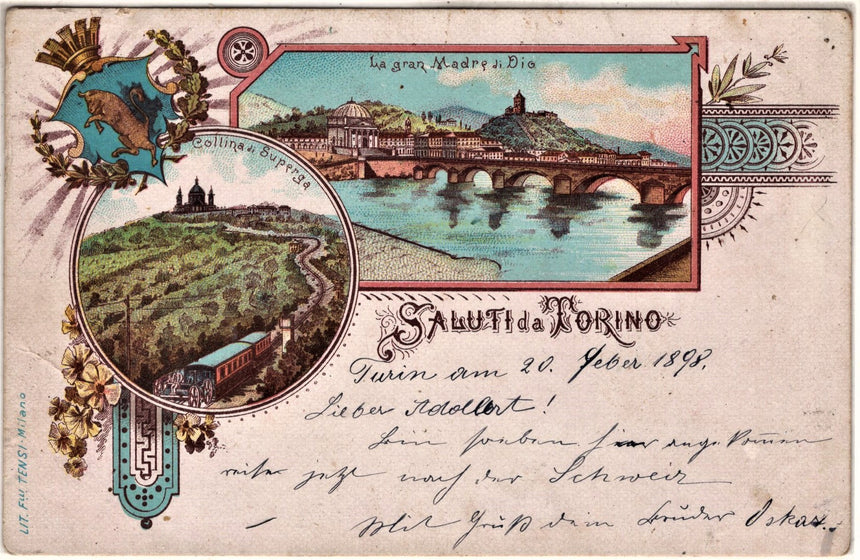 La gran Madre di Dio
Collina di Superga
SALUTI da TORINO
Turin am 20. Feber 1898.
Lieber Adolbert!
Bin soeben hier angekommen
reise jetzt nach der Schweiz
Mit Gruß dein Bruder Oskar.
LIT. F.lli TENSI-Milano